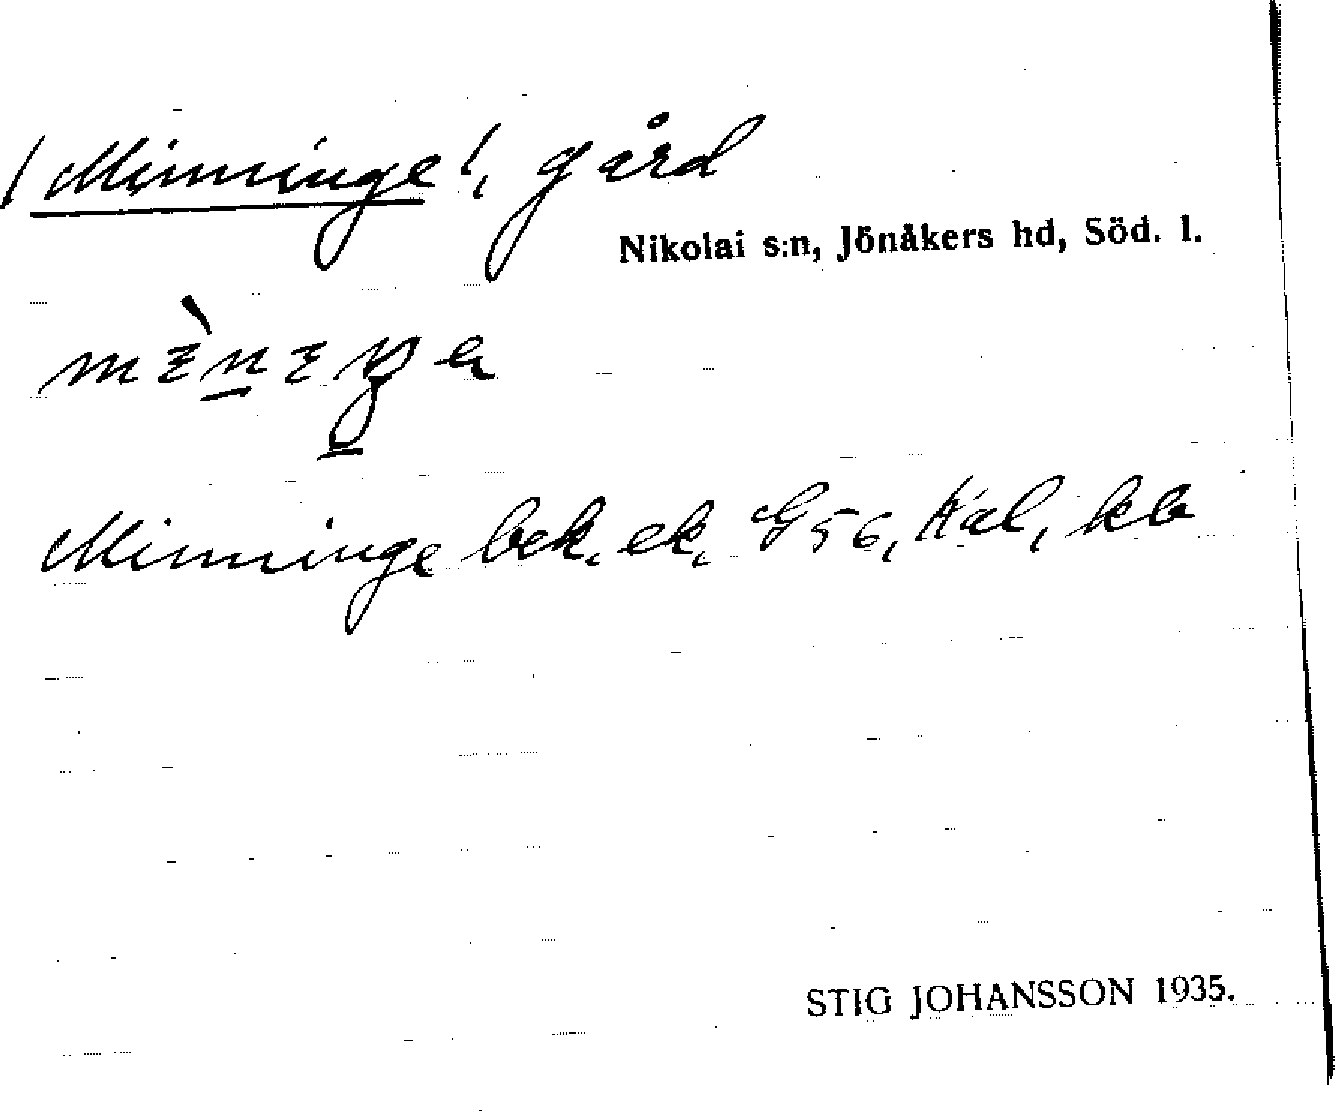 /Minninge/, gård
Nikolai s:n, Jönåkers hd, Söd. l.
Minninge bek. ek. G56, Häl, kb
STIG JOHANSSON 1935.